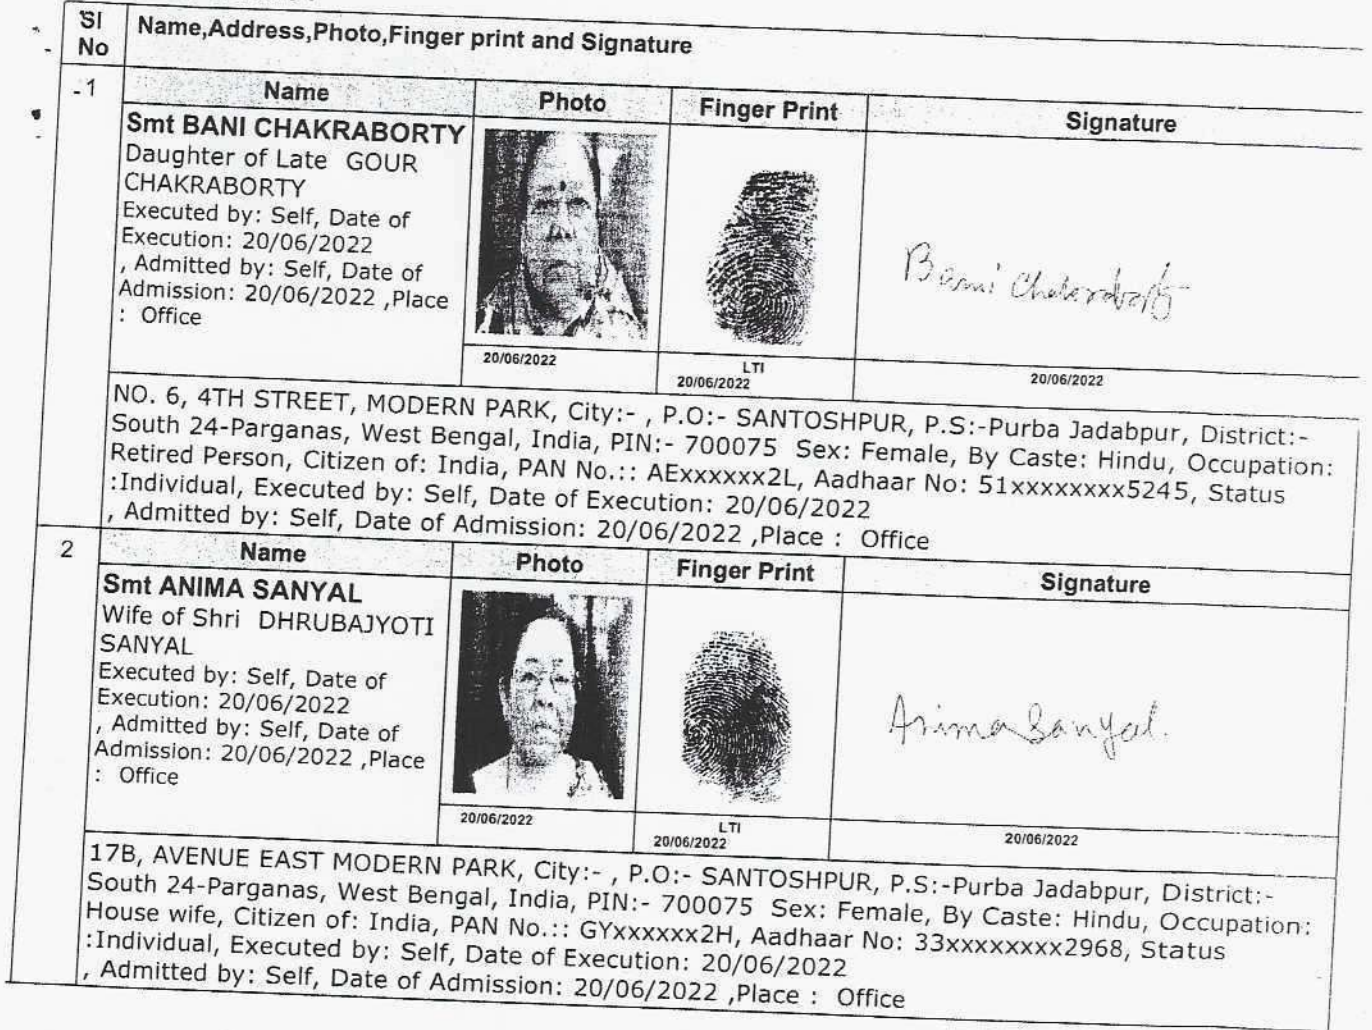 Sl No Name,Address,Photo,Finger print and Signature
1 Name Photo Finger Print Signature
Smt BANI CHAKRABORTY
Daughter of Late GOUR
CHAKRABORTY
Executed by: Self, Date of
Execution: 20/06/2022
, Admitted by: Self, Date of
Admission: 20/06/2022 ,Place
: Office
Bani Chakraborty
20/06/2022 LTI 20/06/2022 20/06/2022
NO. 6, 4TH STREET, MODERN PARK, City:- , P.O:- SANTOSHPUR, P.S:-Purba Jadabpur, District:-
South 24-Parganas, West Bengal, India, PIN:- 700075 Sex: Female, By Caste: Hindu, Occupation:
Retired Person, Citizen of: India, PAN No.:: AExxxxxx2L, Aadhaar No: 51xxxxxxxx5245, Status
:Individual, Executed by: Self, Date of Execution: 20/06/2022
, Admitted by: Self, Date of Admission: 20/06/2022 ,Place : Office
2 Name Photo Finger Print Signature
Smt ANIMA SANYAL
Wife of Shri DHRUBAJYOTI
SANYAL
Executed by: Self, Date of
Execution: 20/06/2022
, Admitted by: Self, Date of
Admission: 20/06/2022 ,Place
: Office
Anima Sanyal.
20/06/2022 LTI 20/06/2022 20/06/2022
17B, AVENUE EAST MODERN PARK, City:- , P.O:- SANTOSHPUR, P.S:-Purba Jadabpur, District:-
South 24-Parganas, West Bengal, India, PIN:- 700075 Sex: Female, By Caste: Hindu, Occupation:
House wife, Citizen of: India, PAN No.:: GYxxxxxx2H, Aadhaar No: 33xxxxxxxx2968, Status
:Individual, Executed by: Self, Date of Execution: 20/06/2022
, Admitted by: Self, Date of Admission: 20/06/2022 ,Place : Office